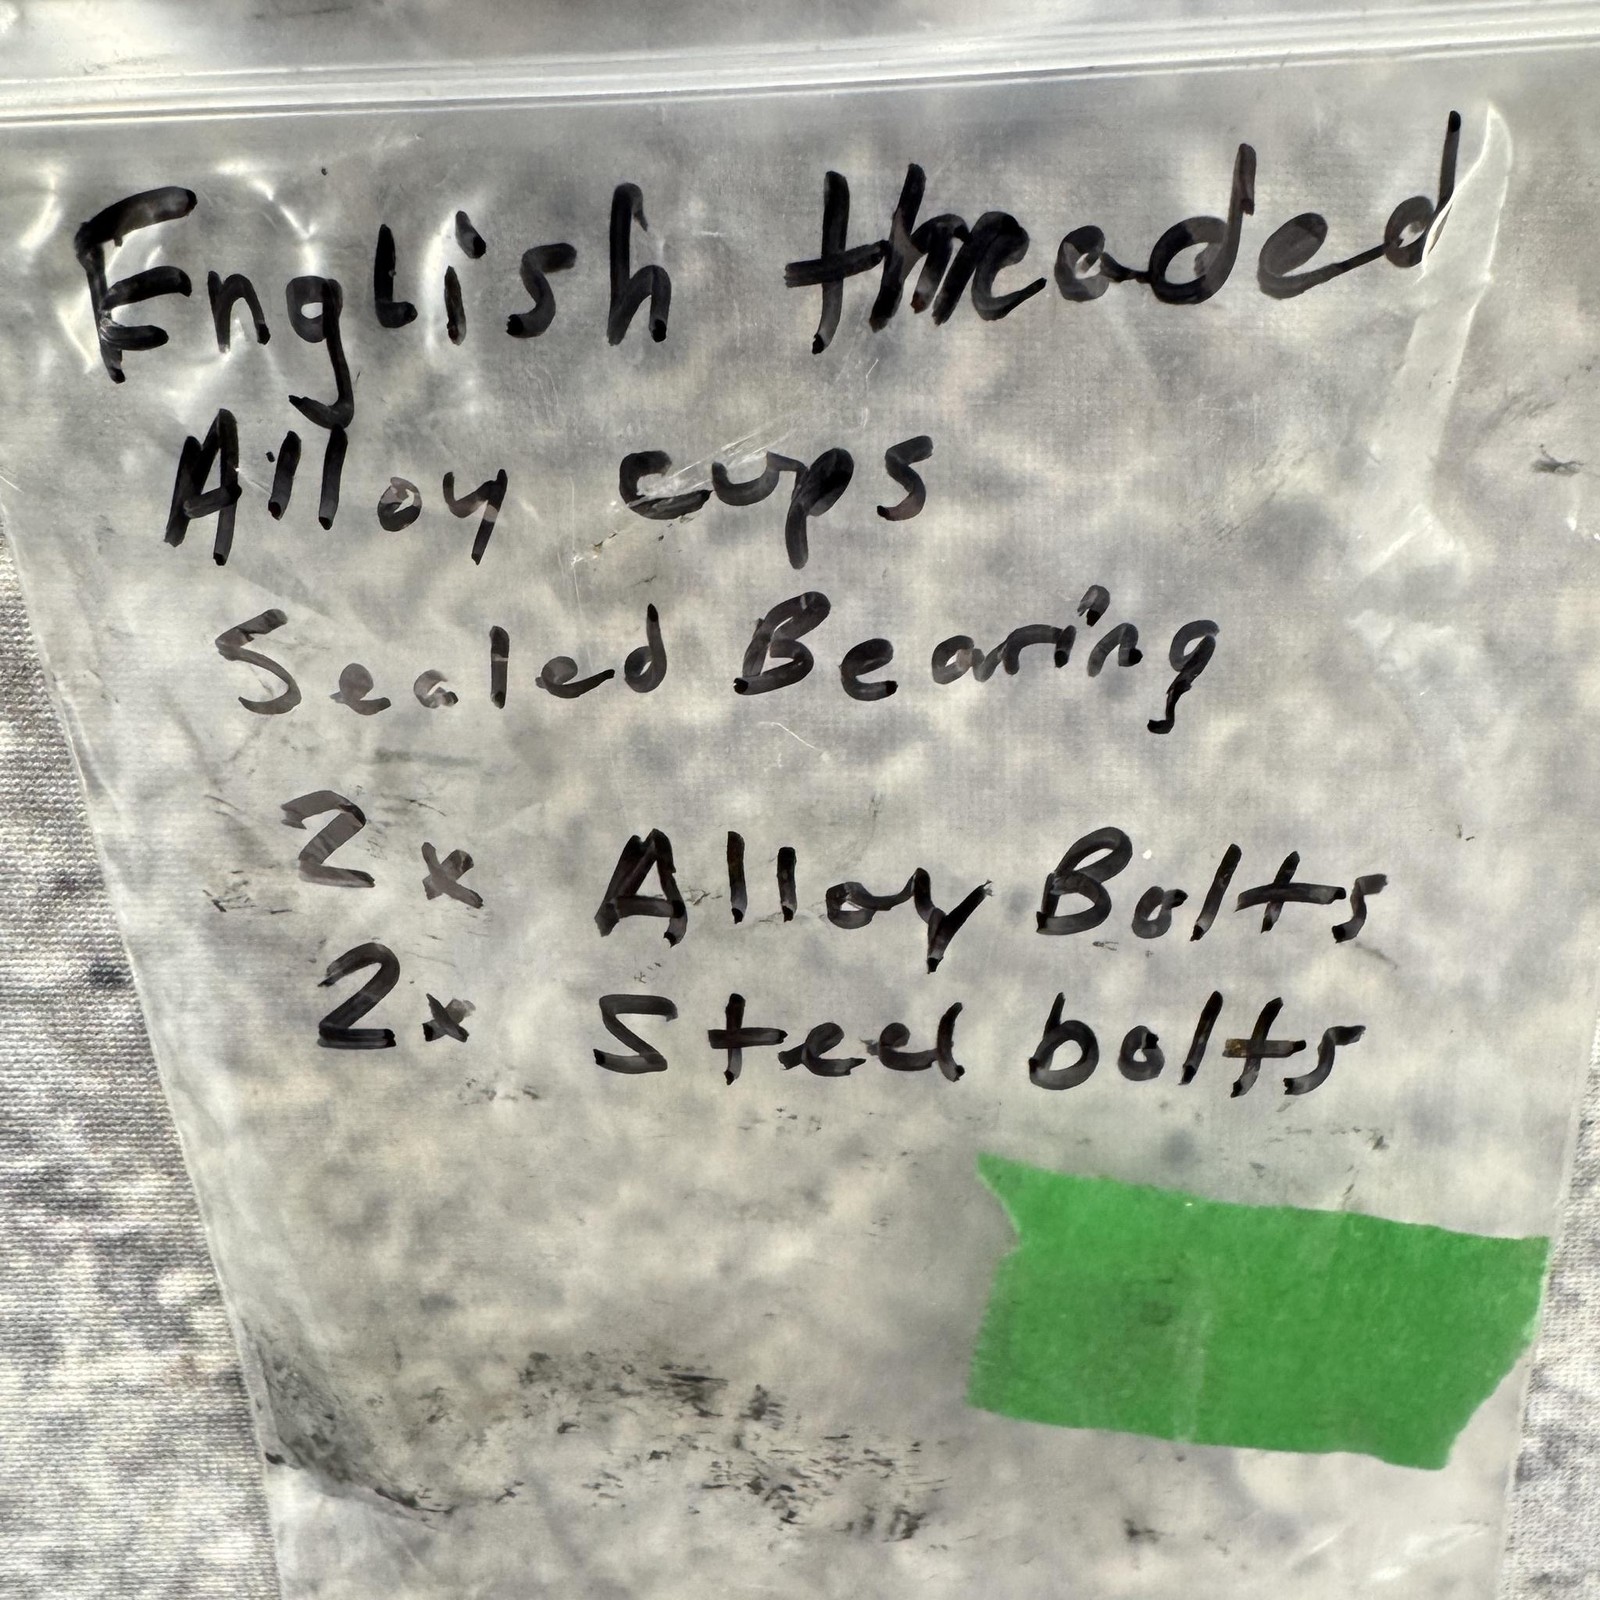 English threaded
Alloy cups
Sealed Bearing
2x Alloy Bolts
2x Steel bolts